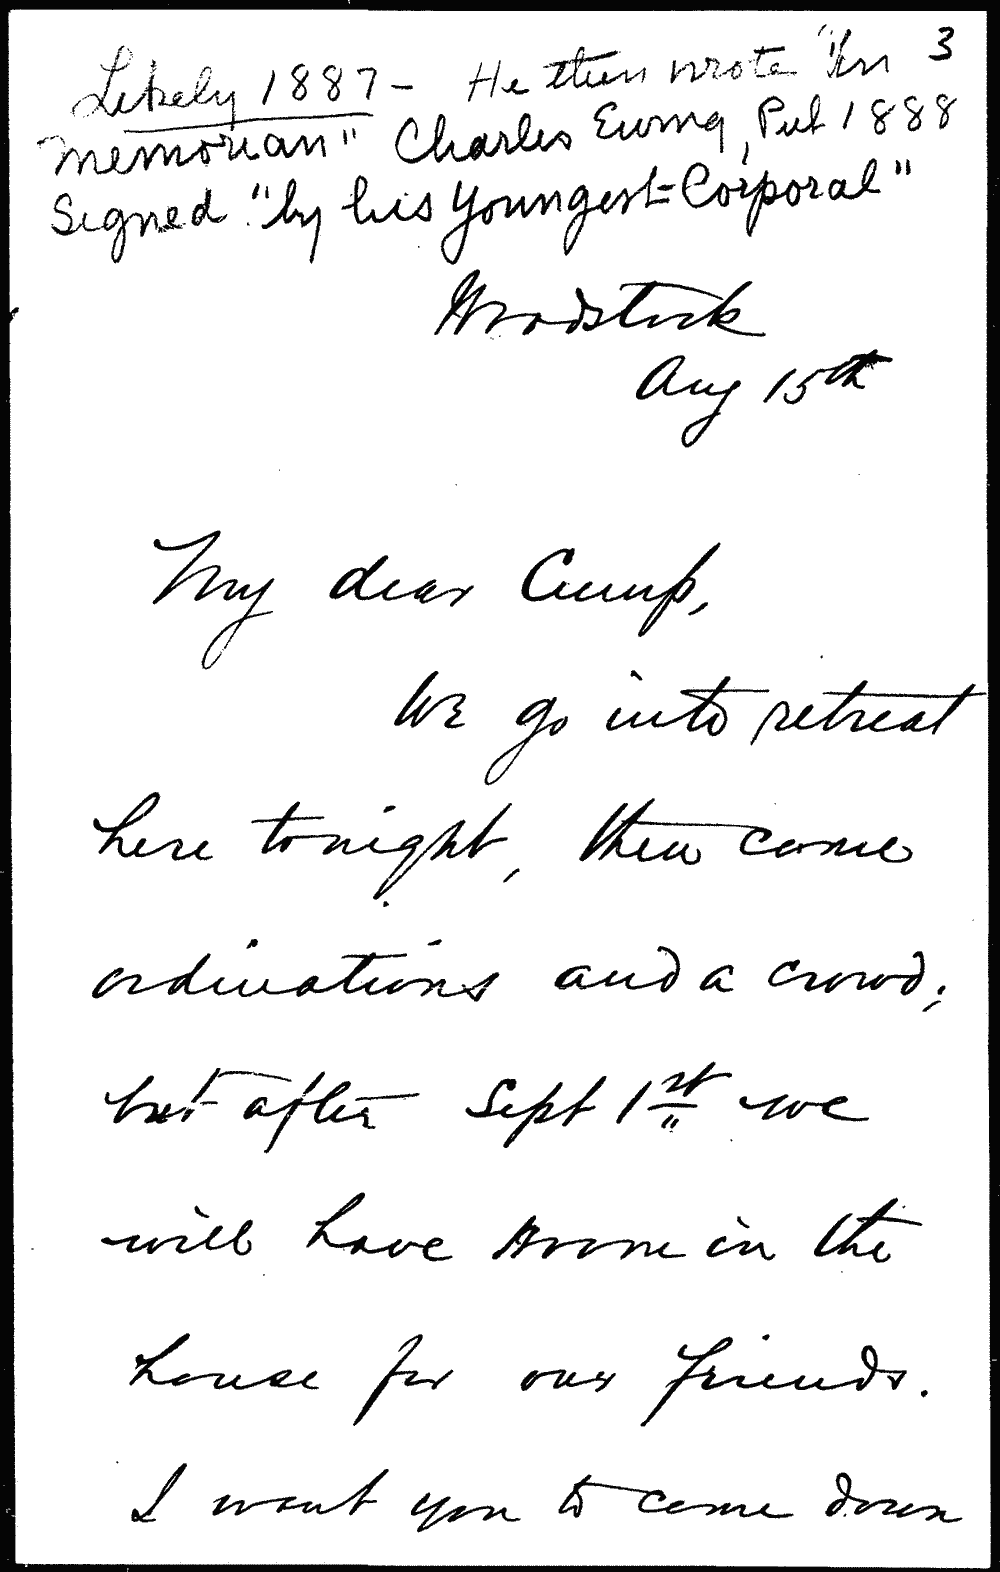 3
Likely 1887 - He then wrote "In
Memorian" Charles Ewing, Pub 1888
Signed "by his Youngest Corporal"
Woodstock
Aug 15th
My dear Cump,
We go into retreat
here tonight, then come
ordinations and a crowd;
but after Sept 1st we
will have room in the
house for our friends.
I want you to come down